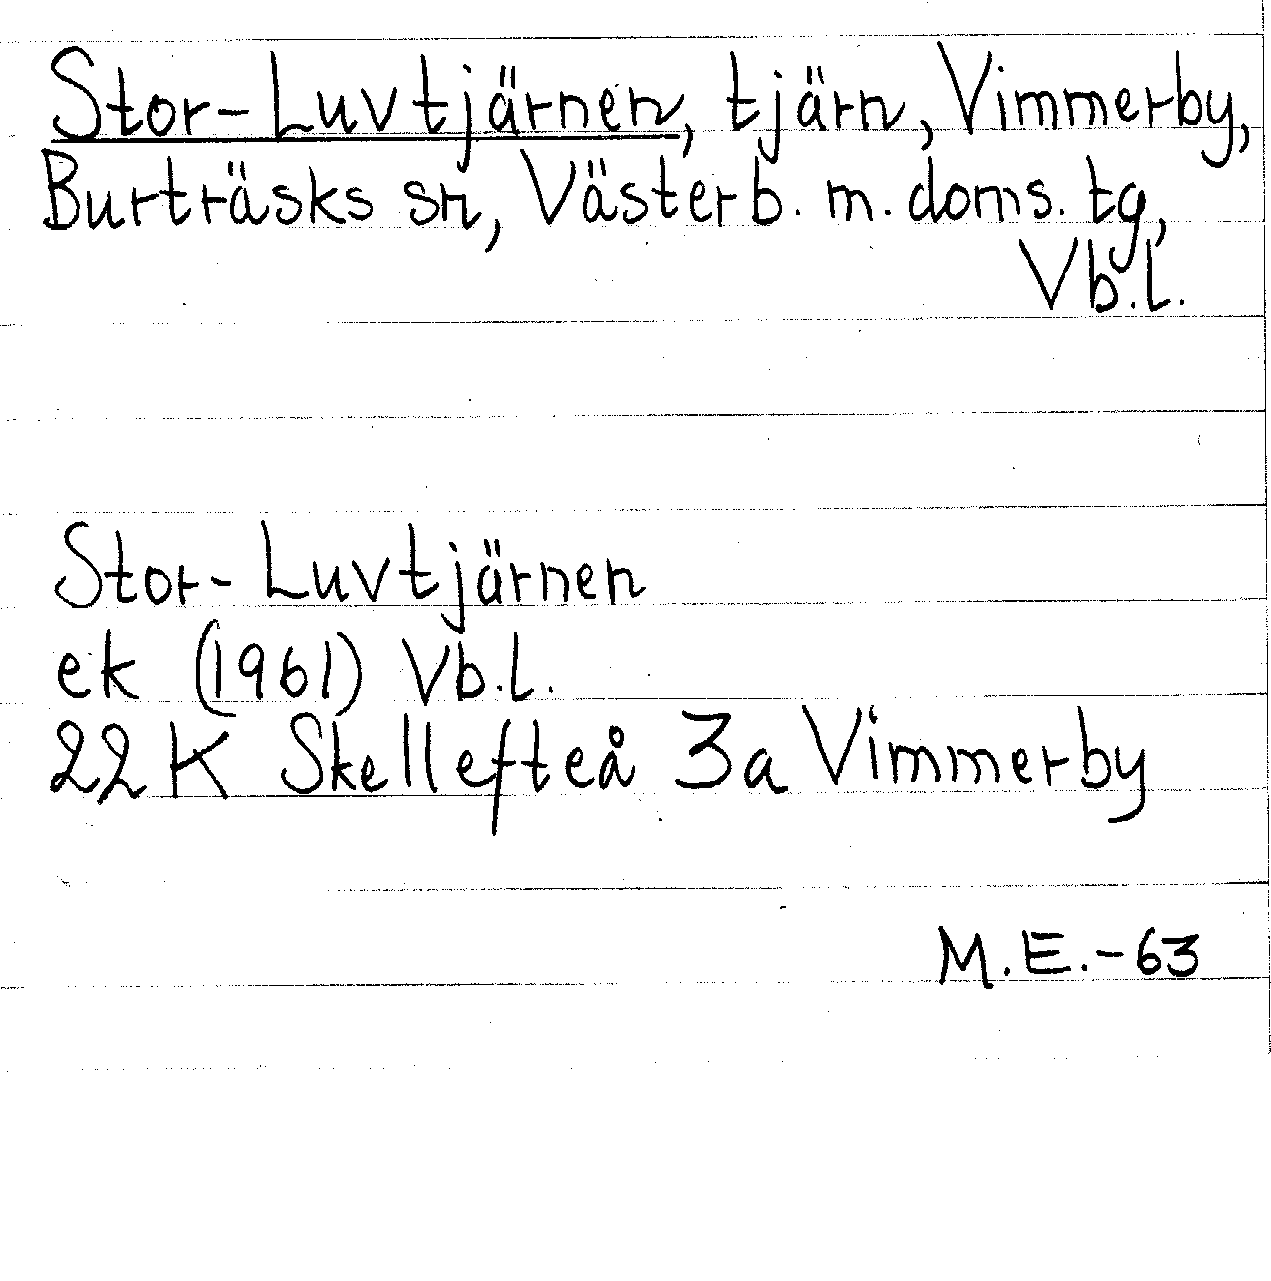 Stor-Luvtjärnen, tjärn, Vimmerby,
Burträsks sn, Västerb. m. doms. tg,
Vb.l.
Stor-Luvtjärnen
ek (1961) Vb.l.
22K Skellefteå 3a Vimmerby
M.E.-63